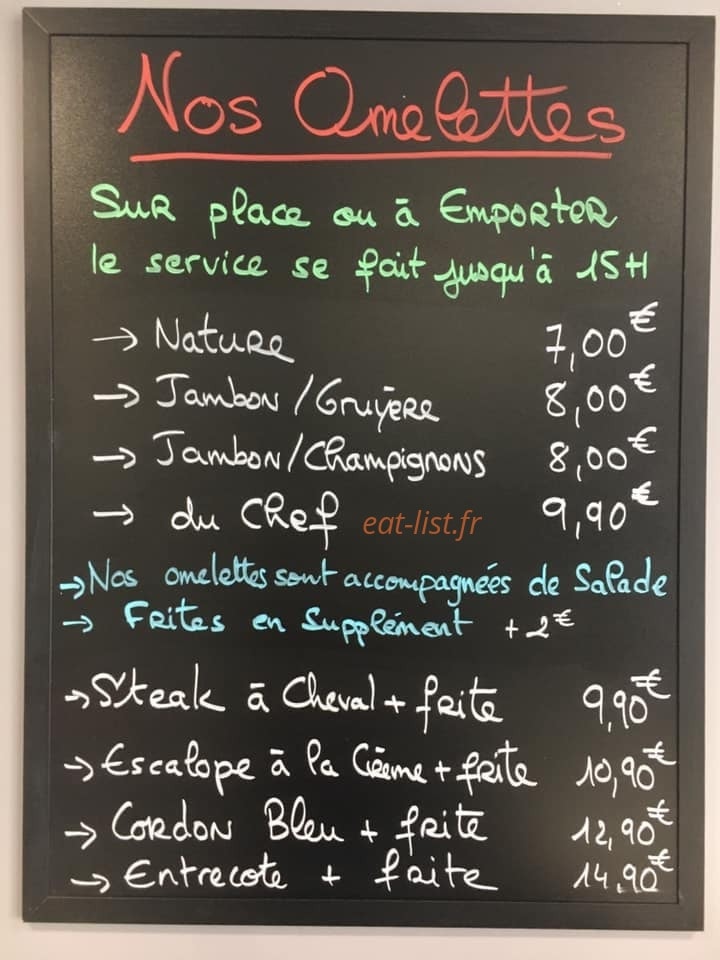 Nos Omelettes
Sur place ou à Emporter
le service se fait jusqu'à 15H
→ Nature 7,00€
→ Jambon/Gruyère 8,00€
→ Jambon/Champignons 8,00€
→ du Chef 9,90€
eat-list.fr
→ Nos omelettes sont accompagnées de Salade
→ Frites en Supplément + 2€
→ Steak à Cheval + frite 9,90€
→ Escalope à la Crème + frite 10,90€
→ Cordon Bleu + frite 12,90€
→ Entrecote + frite 14.90€